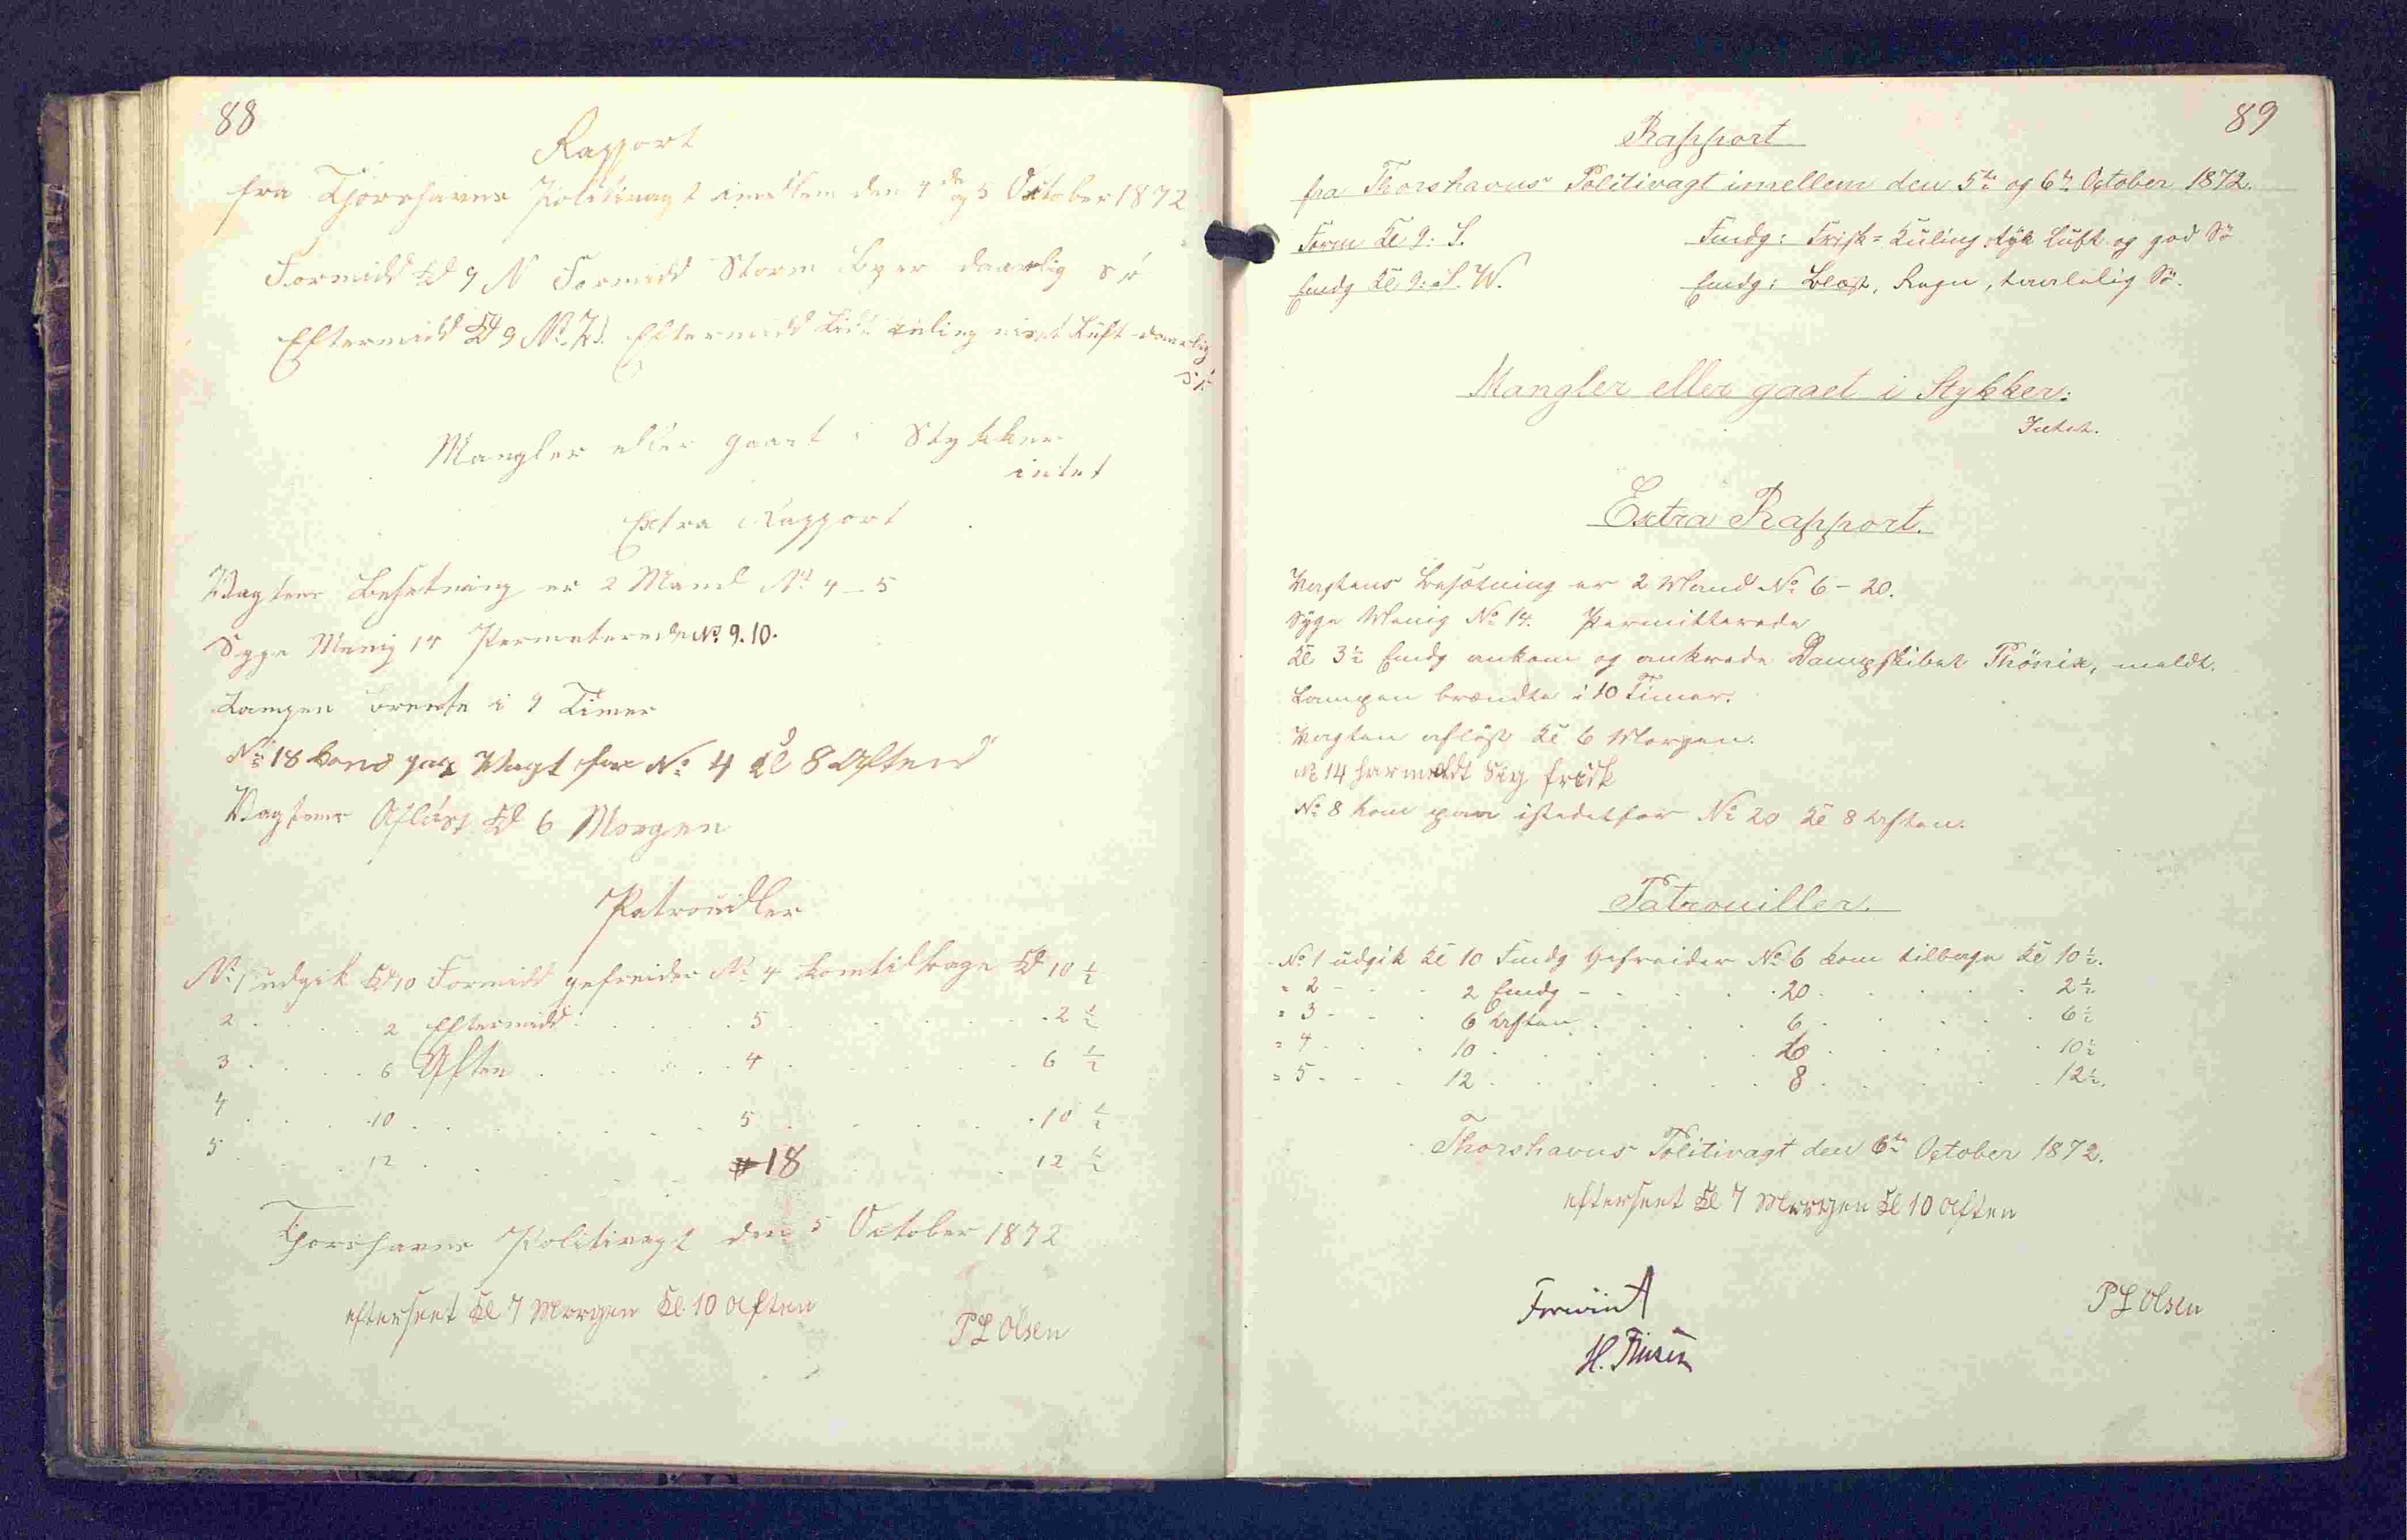 88
Rapport
fra Thorshavns Politivagt imellem den 4de og 5 October 1872
Formidd Kl 9 N Formidd Storm Byer daarlig Sø
Eftermidd Kl 9 N. V. Eftermidd Lidt Kuling Luft daarlig
Sø
Mangler eller gaaet i Stykker
intet
Extra Rapport
Vagtens Besetning er 2 Mand No 4 - 5
Syge Menig 14 Permiterede No 9. 10.
Lampen brente i 9 Timer
No 18 kom paa Vagt for No 4 Kl 8 Aften
Vagtens Afløst Kl 6 Morgen
Patrouiller
No 1 udgik Kl 10 Formidd gefreider No 4 kom tilbage Kl 10 ½
2 . . . . 2 Eftermidd . . . . 5 . . . . 2 ½
3 . . . . 6 Aften . . . . 4 . . . . 6 ½
4 . . . . 10 . . . . 5 . . . . 10 ½
5 . . . . 12 . . . . 18 . . . . 12 ½
Thorshavns Politivagt den 5 October 1872
efterseet Kl 7 Morgen Kl 10 Aften
P L Olsen
89
Rapport
fra Thorshavns Politivagt imellem den 5te og 6te October 1872.
Form Kl 9: S. Fmdg: Frisk=Kuling, tyk Luft og god Sø
Emdg Kl 9: S. W. Emdg: Blæst, Regn, taalelig Sø.
Mangler eller gaaet i Stykker:
Intet.
Extra Rapport.
Vagtens Besætning er 2 Mand No 6 - 20.
Syge Menig No 14. Permitterede
Kl 3½ Emdg ankom og ankrede Dampskibet Phönix, meldt.
Lampen brændte i 10 Timer.
Vagten afløst Kl 6 Morgen.
No 14 har meldt Sig frisk
No 8 kom paa istedetfor No 20 Kl 8 Aften.
Patrouiller.
No 1 udgik Kl 10 Fmdg Gefreider No 6 kom tilbage Kl 10½.
" 2 - - - 2 Emdg - . . . 20 . . . . 2½
" 3 - - - 6 Aften . . . . 6 . . . . 6½
" 4 - - - 10 . . . . 20 . . . . 10½
" 5 - - - 12 . . . . 8 . . . . 12½.
Thorshavns Politivagt den 6te October 1872.
efterseet Kl 7 Morgen Kl 10 Aften
P L Olsen
Forevist
H. Finsen